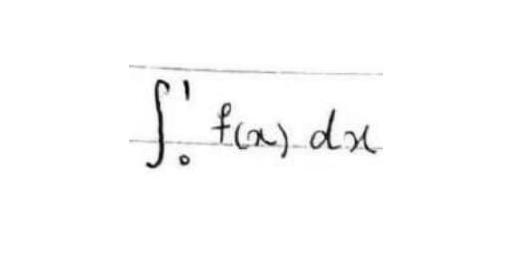 ∫₀¹ f(x) dx